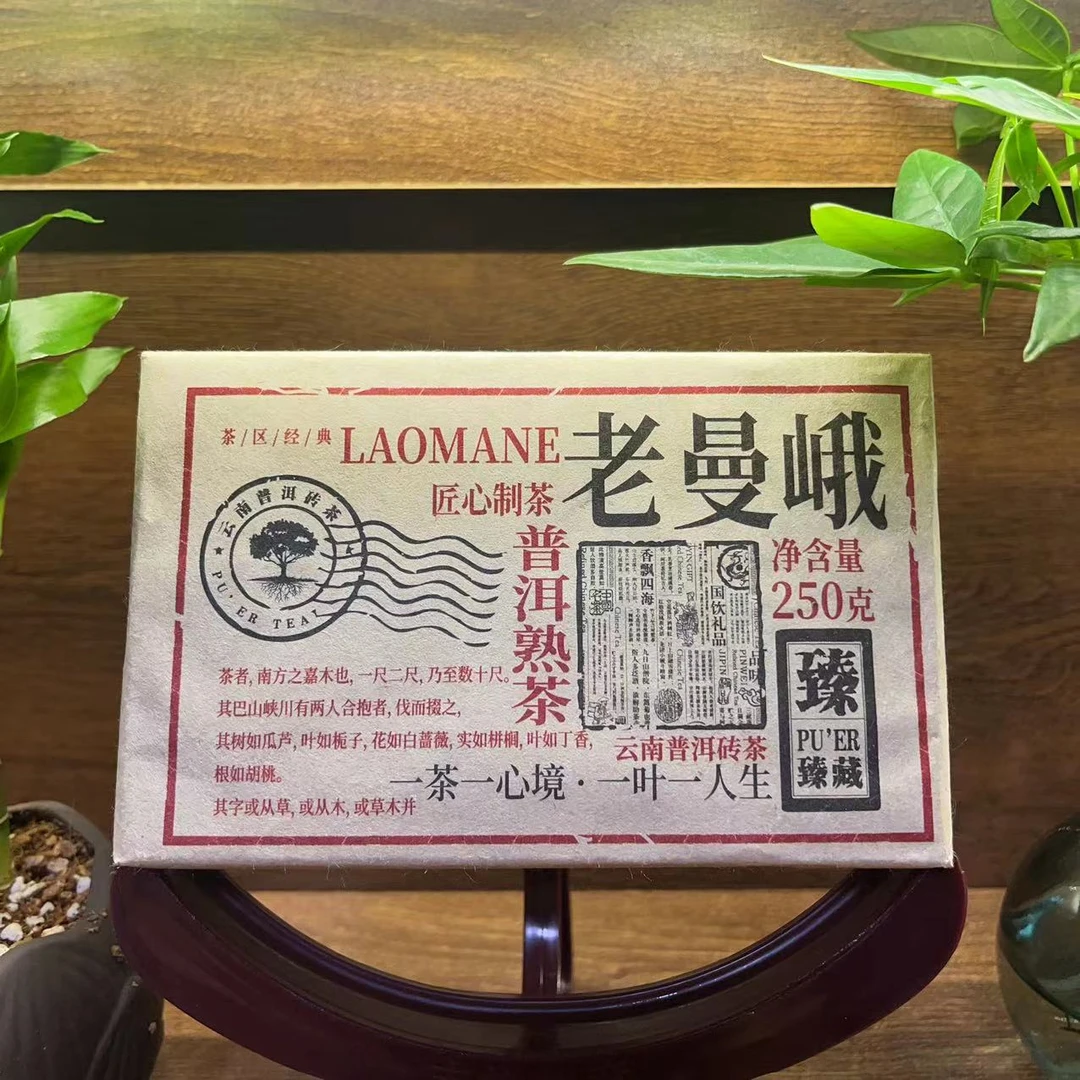 茶/区/经/典
LAOMANE
老曼峨
匠心制茶
普洱熟茶
净含量
250克
云南普洱砖茶
PU·ER TEA
香飘四海
国饮礼品
臻
PU'ER
臻藏
茶者, 南方之嘉木也, 一尺二尺, 乃至数十尺。
其巴山峡川有两人合抱者, 伐而掇之,
其树如瓜芦, 叶如栀子, 花如白蔷薇, 实如栟榈, 叶如丁香,
根如胡桃。
其字或从草, 或从木, 或草木并
云南普洱砖茶
一茶一心境·一叶一人生